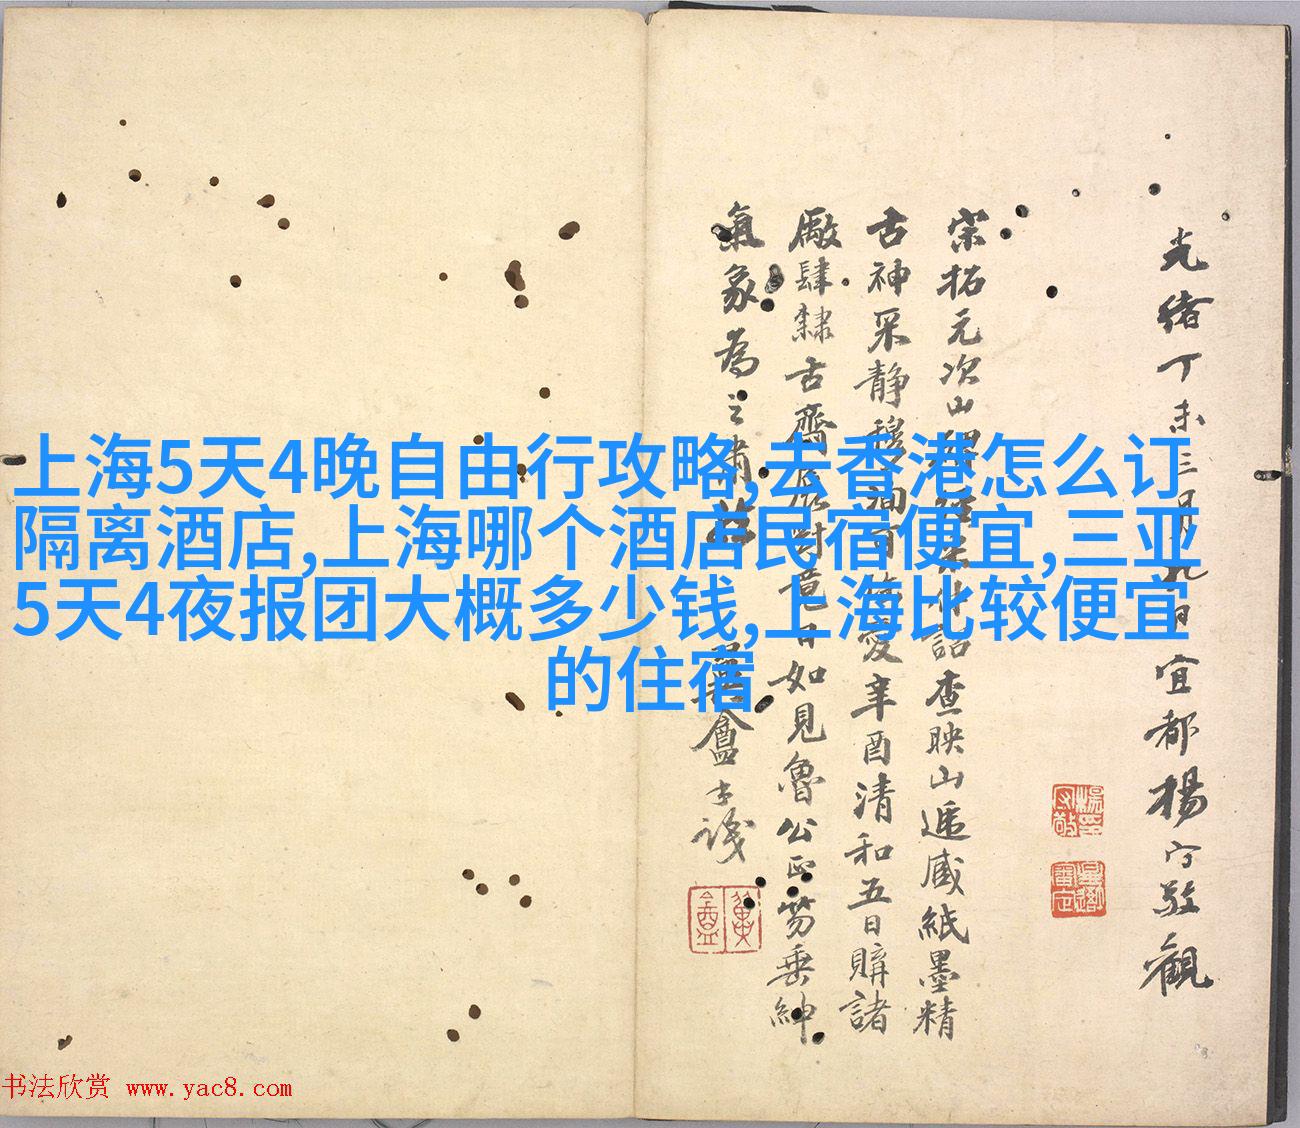 上海5天4晚自由行攻略,去香港怎么订
隔离酒店,上海哪个酒店民宿便宜,三亚
5天4夜报团大概多少钱,上海比较便宜
的住宿
光绪丁未三月九日宜都楊守敬觀
宋拓元次山碑
查映山遞臧紙墨精
古神采静穆
愛辛酉清和五日購諸
廠肆隸古齋
竟日如見魯公正笏垂紳
氣象為之肅
盦士
書法欣赏 www.yac8.com